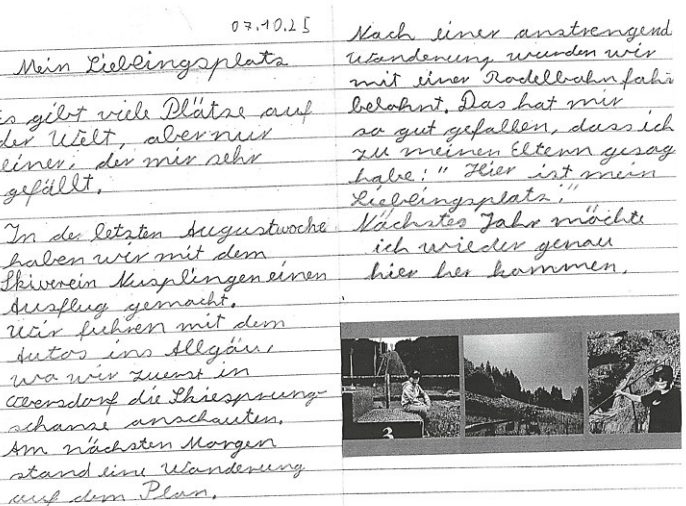 07.10.25
Mein Lieblingsplatz
es gibt viele Plätze auf
der Welt, aber nur
einer, der mir sehr
gefällt.
In der letzten Augustwoche
haben wir mit dem
Skiverein Nusplingen einen
Ausflug gemacht.
Wir fuhren mit dem
Autos ins Allgäu,
wo wir zuerst in
oversdorf die Skiesprung-
schanze anschauten.
Am nächsten Morgen
stand eine Wanderung
auf dem Plan.
Nach einer anstrengend
Wanderung wurden wir
mit einer Rodelbahnfahr
belohnt. Das hat mir
so gut gefallen, dass ich
zu meinen Eltern gesag
habe: "Hier ist mein
Lieblingsplatz!"
Nächstes Jahr möchte
ich wieder genau
hier her kommen.
3